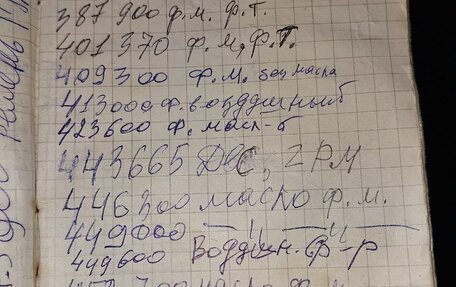 387 900 ф.м. ф.т.
401 370 ф.м, ф.т.
409300 ф.м. без масла
413000 ф. воздушный
423600 ф. масл-б
443665 ДВС, ГРМ
446300 масло ф.м.
449000 — " — " —
449600 Воздушн. ф-р
масло ф.м.